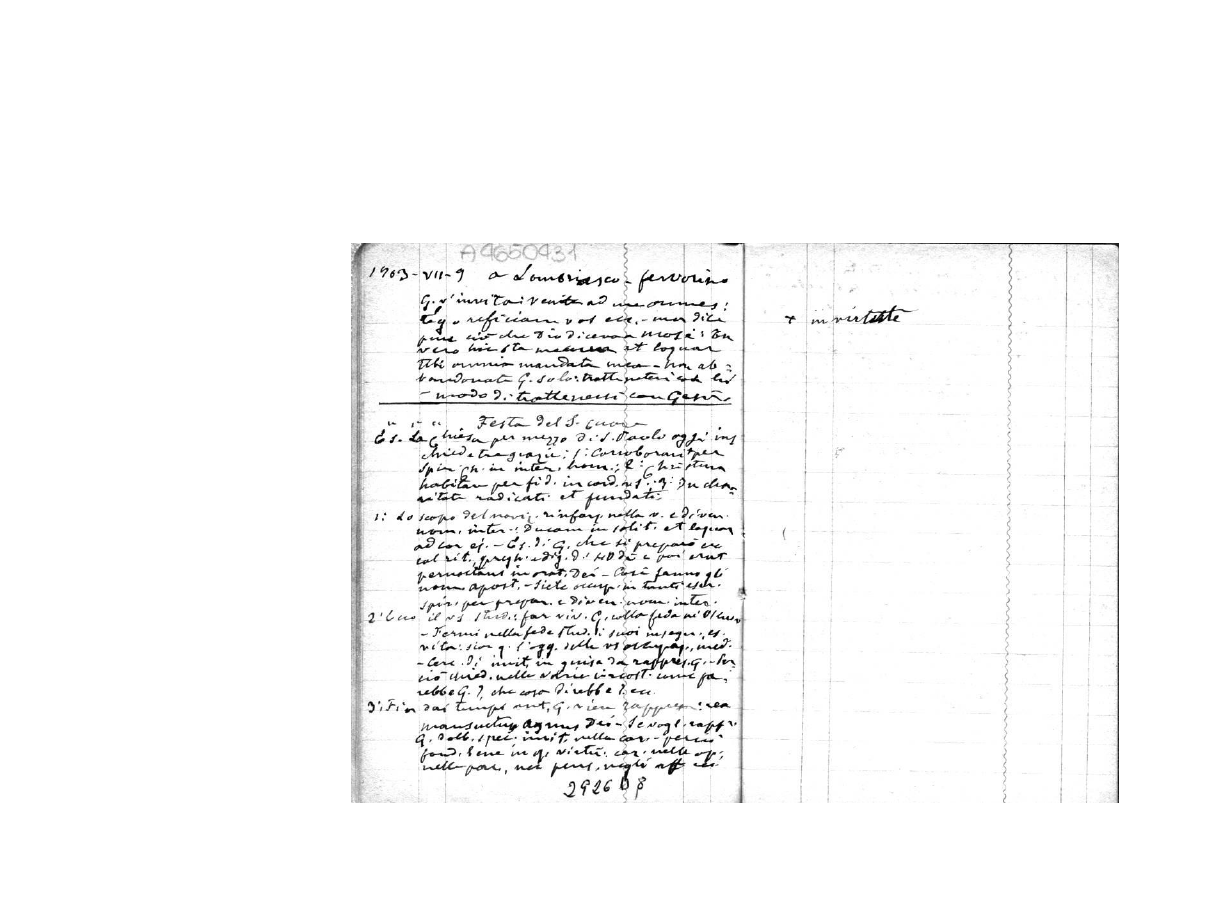 A4650431
1903-VII-9 a Lombriasco - fervorino
G. v'invita: Venite ad me omnes:
et ego reficiam vos ecc. - ma dice
pure ciò che Dio diceva a Mosè: Tu
vero hic sta mecum et loquar
tibi omnia mandata mea - Non ab=
bandonate G. solo: trattenetevi con lui
- modo di trattenersi con Gesù
" " " Festa del S. Cuore
Es. La Chiesa per mezzo di S. Paolo oggi
chiede tre grazie: 1: Corroborari per
Spir. in inter. hom.; 2: Christum
habitare per fid. in cord. 3: In cha=
ritate radicati et fundati.
1: Lo scopo del noviz. rinforz. nella v. e diven.
uom. inter.: Ducam in solit. et loquar
ad cor ej. - Es. di G. che si preparò
col rit. pregh. e dig. di 40 dì e poi erat
pernoctans in orat. Dei - Così fanno gli
uom. apost. - Siete occup. in tanti eser.
spir. per prepar. e diven. uom. inter.
2: il vs stud.: far viv. G. colla fede
- Fermi nella fede stud. i suoi insegn., es.
vita: sia q. l'ogg. delle vs occupaz., med.
- Cerc. di imit. in guisa da rappres. G. - Per
ciò chied. nelle varie circost. come fa=
rebbe G.?, che cosa direbbe? ecc.
3: Fin dai tempi ant. G. vien rappresen.
mansuetus Agnus Dei - Se vogl. rapp.
G. dobb. spec. imit. nella car. - perciò
fond. bene in q. virtù: car. nelle op.
nelle par., nei pens., negli aff. ecc.
2926 D 8
+ in virtute